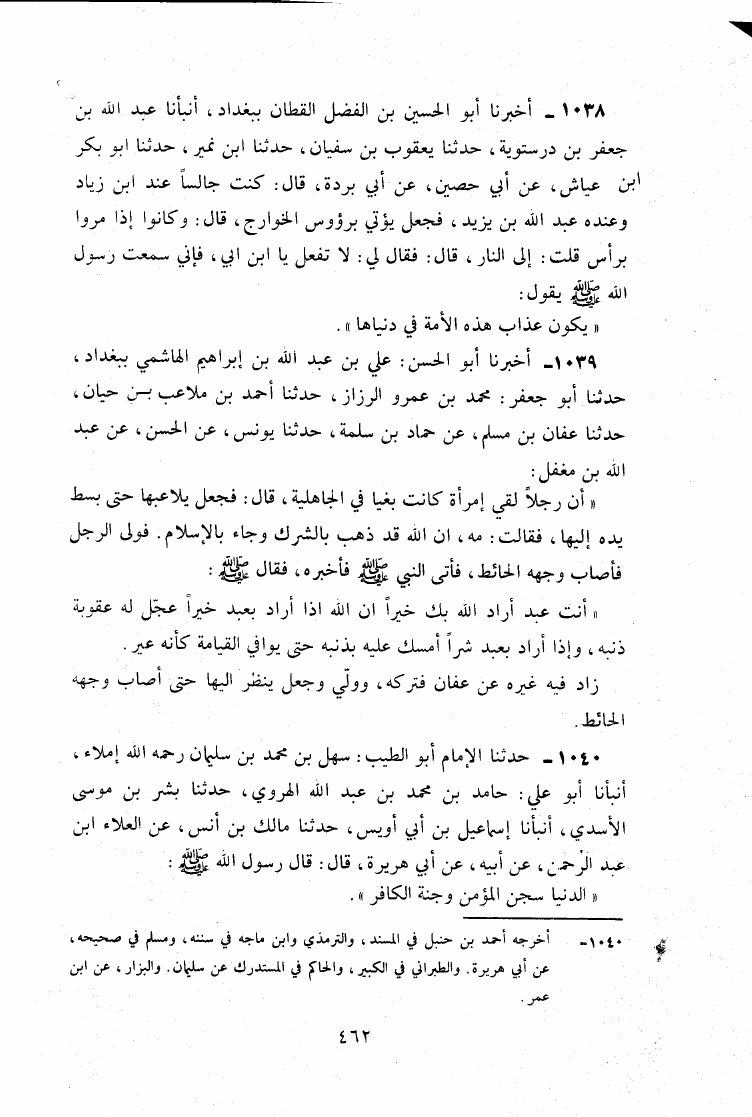 ١٠٣٨ ـ أخبرنا أبو الحسين بن الفضل القطان ببغداد، أنبأنا عبد الله بن
جعفر بن درستوية، حدثنا يعقوب بن سفيان، حدثنا ابن نمير، حدثنا ابو بكر
ابن عياش، عن أبي حصين، عن أبي بردة، قال: كنت جالساً عند ابن زياد
وعنده عبد الله بن يزيد، فجعل يؤتي برؤوس الخوارج، قال: وكانوا إذا مروا
برأس قلت: إلى النار، قال: فقال لي: لا تفعل يا ابن اني، فإني سمعت رسول
الله ﷺ يقول:
« يكون عذاب هذه الأمة في دنياها ».
١٠٣٩ـ أخبرنا أبو الحسن: علي بن عبد الله بن إبراهيم الهاشمي ببغداد،
حدثنا أبو جعفر: محمد بن عمرو الرزاز، حدثنا أحمد بن ملاعب بـن حيان،
حدثنا عفان بن مسلم، عن حماد بن سلمة، حدثنا يونس، عن الحسن، عن عبد
الله بن مغفل:
« أن رجلاً لقي إمرأة كانت بغيا في الجاهلية، قال: فجعل يلاعبها حتى بسط
يده إليها، فقالت: مه، ان الله قد ذهب بالشرك وجاء بالإسلام. فولى الرجل
فأصاب وجهه الحائط، فأتى النبي ﷺ فأخبره، فقال ﷺ:
« أنت عبد أراد الله بك خيراً ان الله اذا أراد بعبد خيراً عجّل له عقوبة
ذنبه، وإذا أراد بعبد شراً أمسك عليه بذنبه حتى يوافي القيامة كأنه عير.
زاد فيه غيره عن عفان فتركه، وولّي وجعل ينظر اليها حتى أصاب وجهه
الحائط.
١٠٤٠ ـ حدثنا الإمام أبو الطيب: سهل بن محمد بن سليمان رحمه الله إملاء،
أنبأنا أبو علي: حامد بن محمد بن عبد الله الهروي، حدثنا بشر بن موسى
الأسدي، أنبأنا إسماعيل بن أبي أويس، حدثنا مالك بن أنس، عن العلاء ابن
عبد الرحمن، عن أبيه، عن أبي هريرة، قال: قال رسول الله ﷺ:
« الدنيا سجن المؤمن وجنة الكافر ».
١٠٤٠ـ أخرجه أحمد بن حنبل في المسند، والترمذي وابن ماجه في سننه، ومسلم في صحيحه،
عن أبي هريرة. والطبراني في الكبير، والحاكم في المستدرك عن سليمان. والبزار، عن ابن
عمر.
٤٦٢